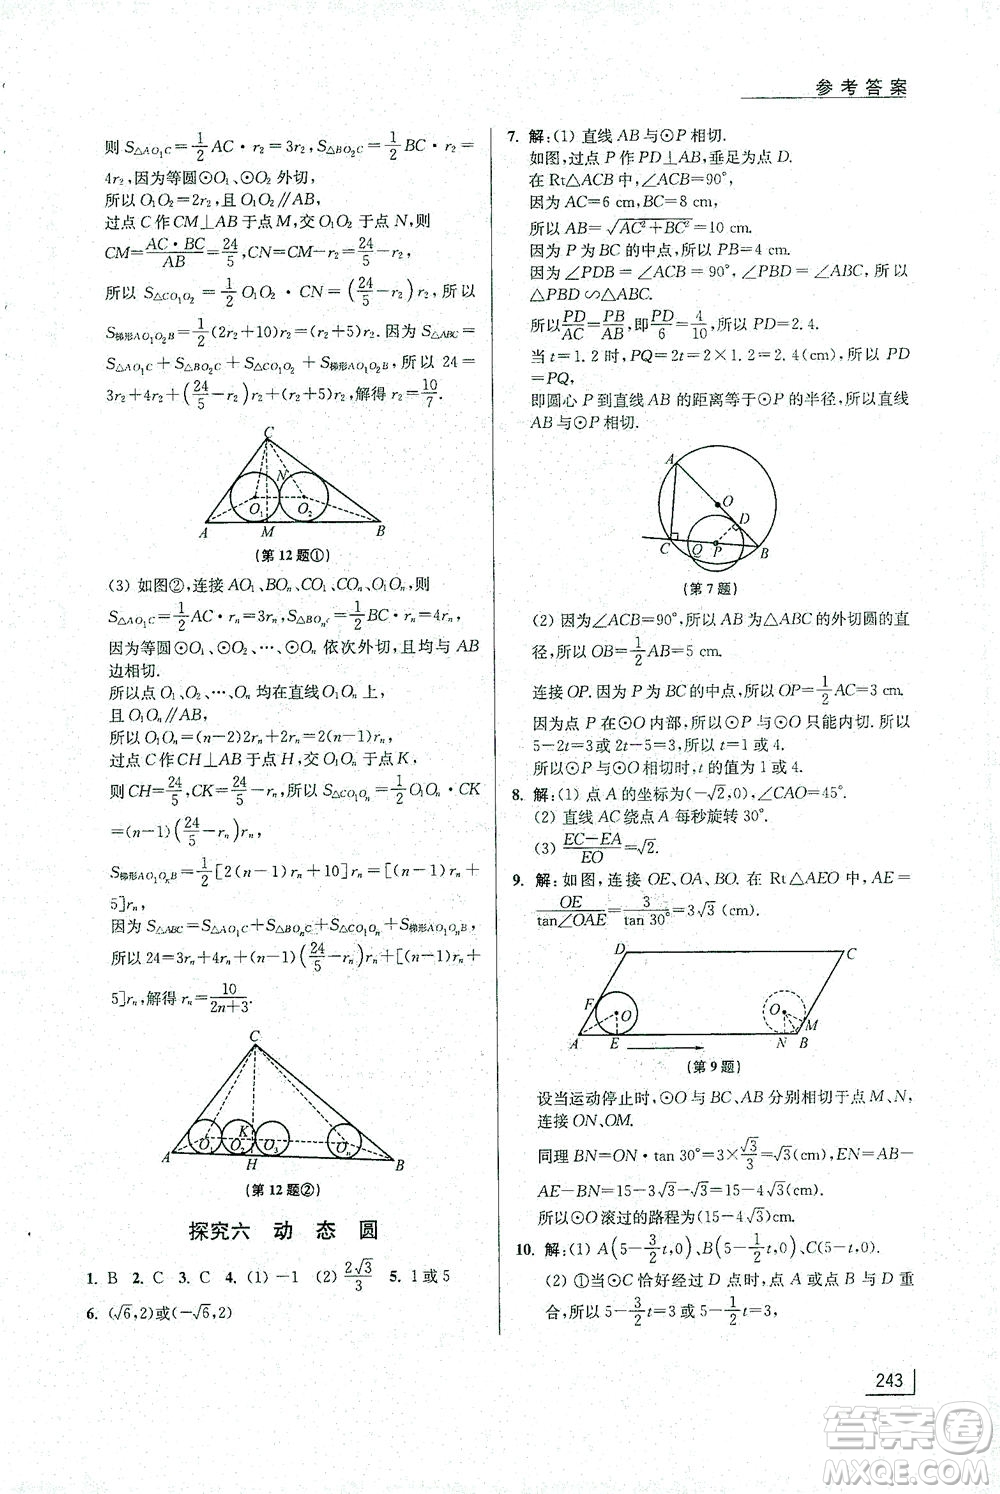 参考答案
则 S△AO₁C=1/2 AC·r₂=3r₂,S△BO₂C=1/2 BC·r₂=
4r₂,因为等圆⊙O₁、⊙O₂ 外切,
所以 O₁O₂=2r₂,且 O₁O₂∥AB,
过点 C 作 CM⊥AB 于点 M,交 O₁O₂ 于点 N,则
CM=AC·BC/AB=24/5,CN=24/5-r₂,
所以 S△CO₁O₂=1/2 O₁O₂·CN=(24/5-r₂)r₂,
S梯形AO₁O₂B=1/2(2r₂+10)r₂=(r₂+5)r₂.因为 S△ABC=
S△AO₁C+S△BO₂C+S△CO₁O₂+S梯形AO₁O₂B,所以 24=
3r₂+4r₂+(24/5-r₂)r₂+(r₂+5)r₂,解得 r₂=10/7.
C
N
O₁
O₂
A
M
B
(第 12 题①)
(3) 如图②,连接 AO₁、BOₙ、CO₁、COₙ、O₁Oₙ,则
S△AO₁C=1/2 AC·rₙ=3rₙ,S△BOₙC=1/2 BC·rₙ=4rₙ,
因为等圆⊙O₁、⊙O₂、…、⊙Oₙ 依次外切,且均与 AB
边相切.
所以点 O₁、O₂、…、Oₙ 均在直线 O₁Oₙ 上,
且 O₁Oₙ∥AB,
所以 O₁Oₙ=(n-2)2rₙ+2rₙ=2(n-1)rₙ.
过点 C 作 CH⊥AB 于点 H,交 O₁Oₙ 于点 K,
则 CH=24/5,CK=24/5-rₙ.所以 S△CO₁Oₙ=1/2 O₁Oₙ·CK
=(n-1)(24/5-rₙ)rₙ,
S梯形AO₁OₙB=1/2[2(n-1)rₙ+10]rₙ=[(n-1)rₙ+
5]rₙ,
因为 S△ABC=S△AO₁C+S△BOₙC+S△CO₁Oₙ+S梯形AO₁OₙB,
所以 24=3rₙ+4rₙ+(n-1)(24/5-rₙ)rₙ+[(n-1)rₙ+
5]rₙ,解得 rₙ=10/(2n+3).
C
K
O₁
O₂
O₃
Oₙ
A
H
B
(第 12 题②)
探究六 动 态 圆
1. B 2. C 3. C 4. (1) -1 (2) 2√3/3 5. 1 或 5
6. (√6,2)或(-√6,2)
7. 解:(1) 直线 AB 与⊙P 相切.
如图,过点 P 作 PD⊥AB,垂足为点 D.
在 Rt△ACB 中,∠ACB=90°,
因为 AC=6 cm,BC=8 cm,
所以 AB=√(AC²+BC²)=10 cm.
因为 P 为 BC 的中点,所以 PB=4 cm.
因为 ∠PDB = ∠ACB = 90°,∠PBD = ∠ABC,所以
△PBD∽△ABC.
所以PD/AC=PB/AB,即PD/6=4/10,所以 PD=2.4.
当 t=1.2 时,PQ=2t=2×1.2=2.4(cm),所以 PD
=PQ,
即圆心 P 到直线 AB 的距离等于⊙P 的半径,所以直线
AB 与⊙P 相切.
A
O
D
C
Q
P
B
(第 7 题)
(2) 因为∠ACB=90°,所以 AB 为△ABC 的外切圆的直
径,所以 OB=1/2 AB=5 cm.
连接 OP.因为 P 为 BC 的中点,所以 OP=1/2 AC=3 cm.
因为点 P 在⊙O 内部,所以⊙P 与⊙O 只能内切.所以
5-2t=3或 2t-5=3,所以 t=1 或 4.
所以⊙P 与⊙O 相切时,t 的值为 1 或 4.
8. 解:(1) 点 A 的坐标为(-√2,0),∠CAO=45°.
(2) 直线 AC 绕点 A 每秒旋转 30°.
(3) (EC-EA)/EO=√2.
9. 解:如图,连接 OE、OA、BO. 在 Rt△AEO 中,AE=
OE/tan∠OAE=3/tan 30°=3√3 (cm).
D
C
F
O
O
M
A
E
N
B
(第 9 题)
设当运动停止时,⊙O 与 BC、AB 分别相切于点 M、N,
连接 ON、OM.
同理 BN=ON·tan 30°=3×√3/3=√3 (cm),EN=AB-
AE-BN=15-3√3-√3=15-4√3 (cm).
所以⊙O 滚过的路程为(15-4√3)cm.
10. 解:(1) A(5-3/2t,0)、B(5-1/2t,0).
(2) ①当⊙C 恰好经过 D 点时,点 A 或点 B 与 D 重
合,所以 5-3/2t=3,或 5-1/2t=3,
243
答案圈
MXQE.COM